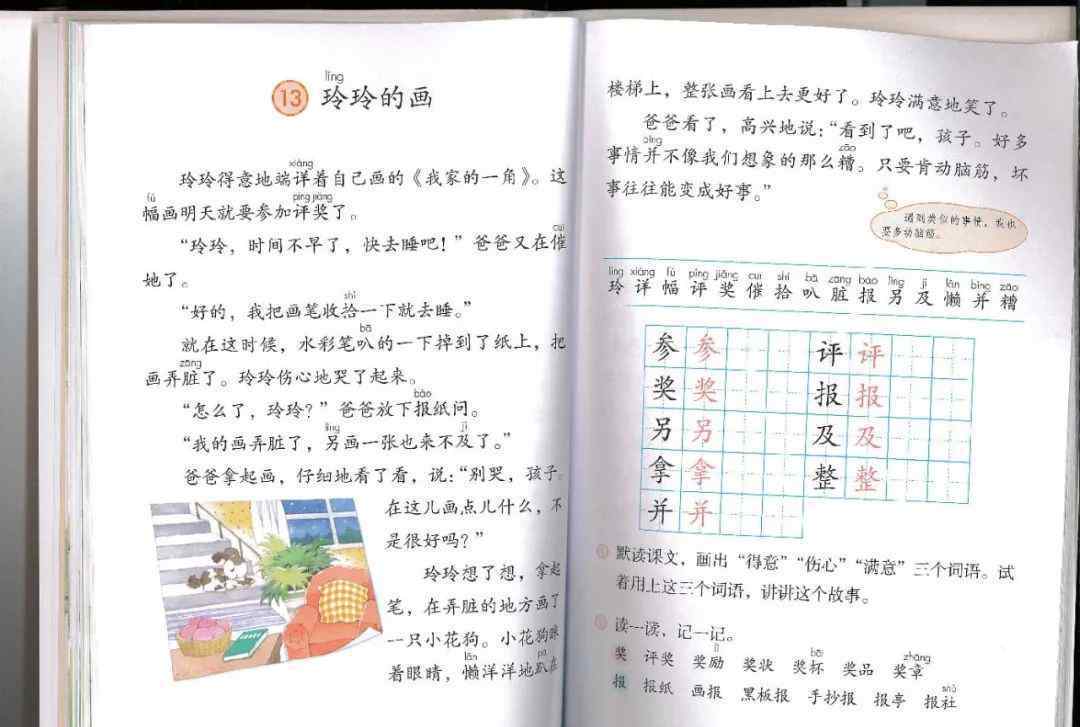 líng
13 玲玲的画
xiáng
玲玲得意地端详着自己画的《我家的一角》。这
fú píng jiǎng
幅画明天就要参加评奖了。
cuī
“玲玲，时间不早了，快去睡吧！”爸爸又在催
她了。
shí
“好的，我把画笔收拾一下就去睡。”
bā
就在这时候，水彩笔叭的一下掉到了纸上，把
zāng
画弄脏了。玲玲伤心地哭了起来。
bào
“怎么了，玲玲？”爸爸放下报纸问。
lìng jí
“我的画弄脏了，另画一张也来不及了。”
爸爸拿起画，仔细地看了看，说：“别哭，孩子。
在这儿画点儿什么，不
是很好吗？”
玲玲想了想，拿起
笔，在弄脏的地方画了
一只小花狗。小花狗眯
lǎn pā
着眼睛，懒洋洋地趴在
楼梯上，整张画看上去更好了。玲玲满意地笑了。
爸爸看了，高兴地说：“看到了吧，孩子。好多
bìng zāo
事情并不像我们想象的那么糟。只要肯动脑筋，坏
事往往能变成好事。”
遇到类似的事情，我也
要多动脑筋。
líng xiáng fú píng jiǎng cuī shí bā zāng bào lìng jí lǎn bìng zāo
玲 详 幅 评 奖 催 拾 叭 脏 报 另 及 懒 并 糟
参 参 评 评
奖 奖 报 报
另 另 及 及
拿 拿 整 整
并 并
默读课文，画出“得意”“伤心”“满意”三个词语。试
着用上这三个词语，讲讲这个故事。
读一读，记一记。
lì bēi zhāng
奖 评奖 奖励 奖状 奖杯 奖品 奖章
shè
报 报纸 画报 黑板报 手抄报 报亭 报社